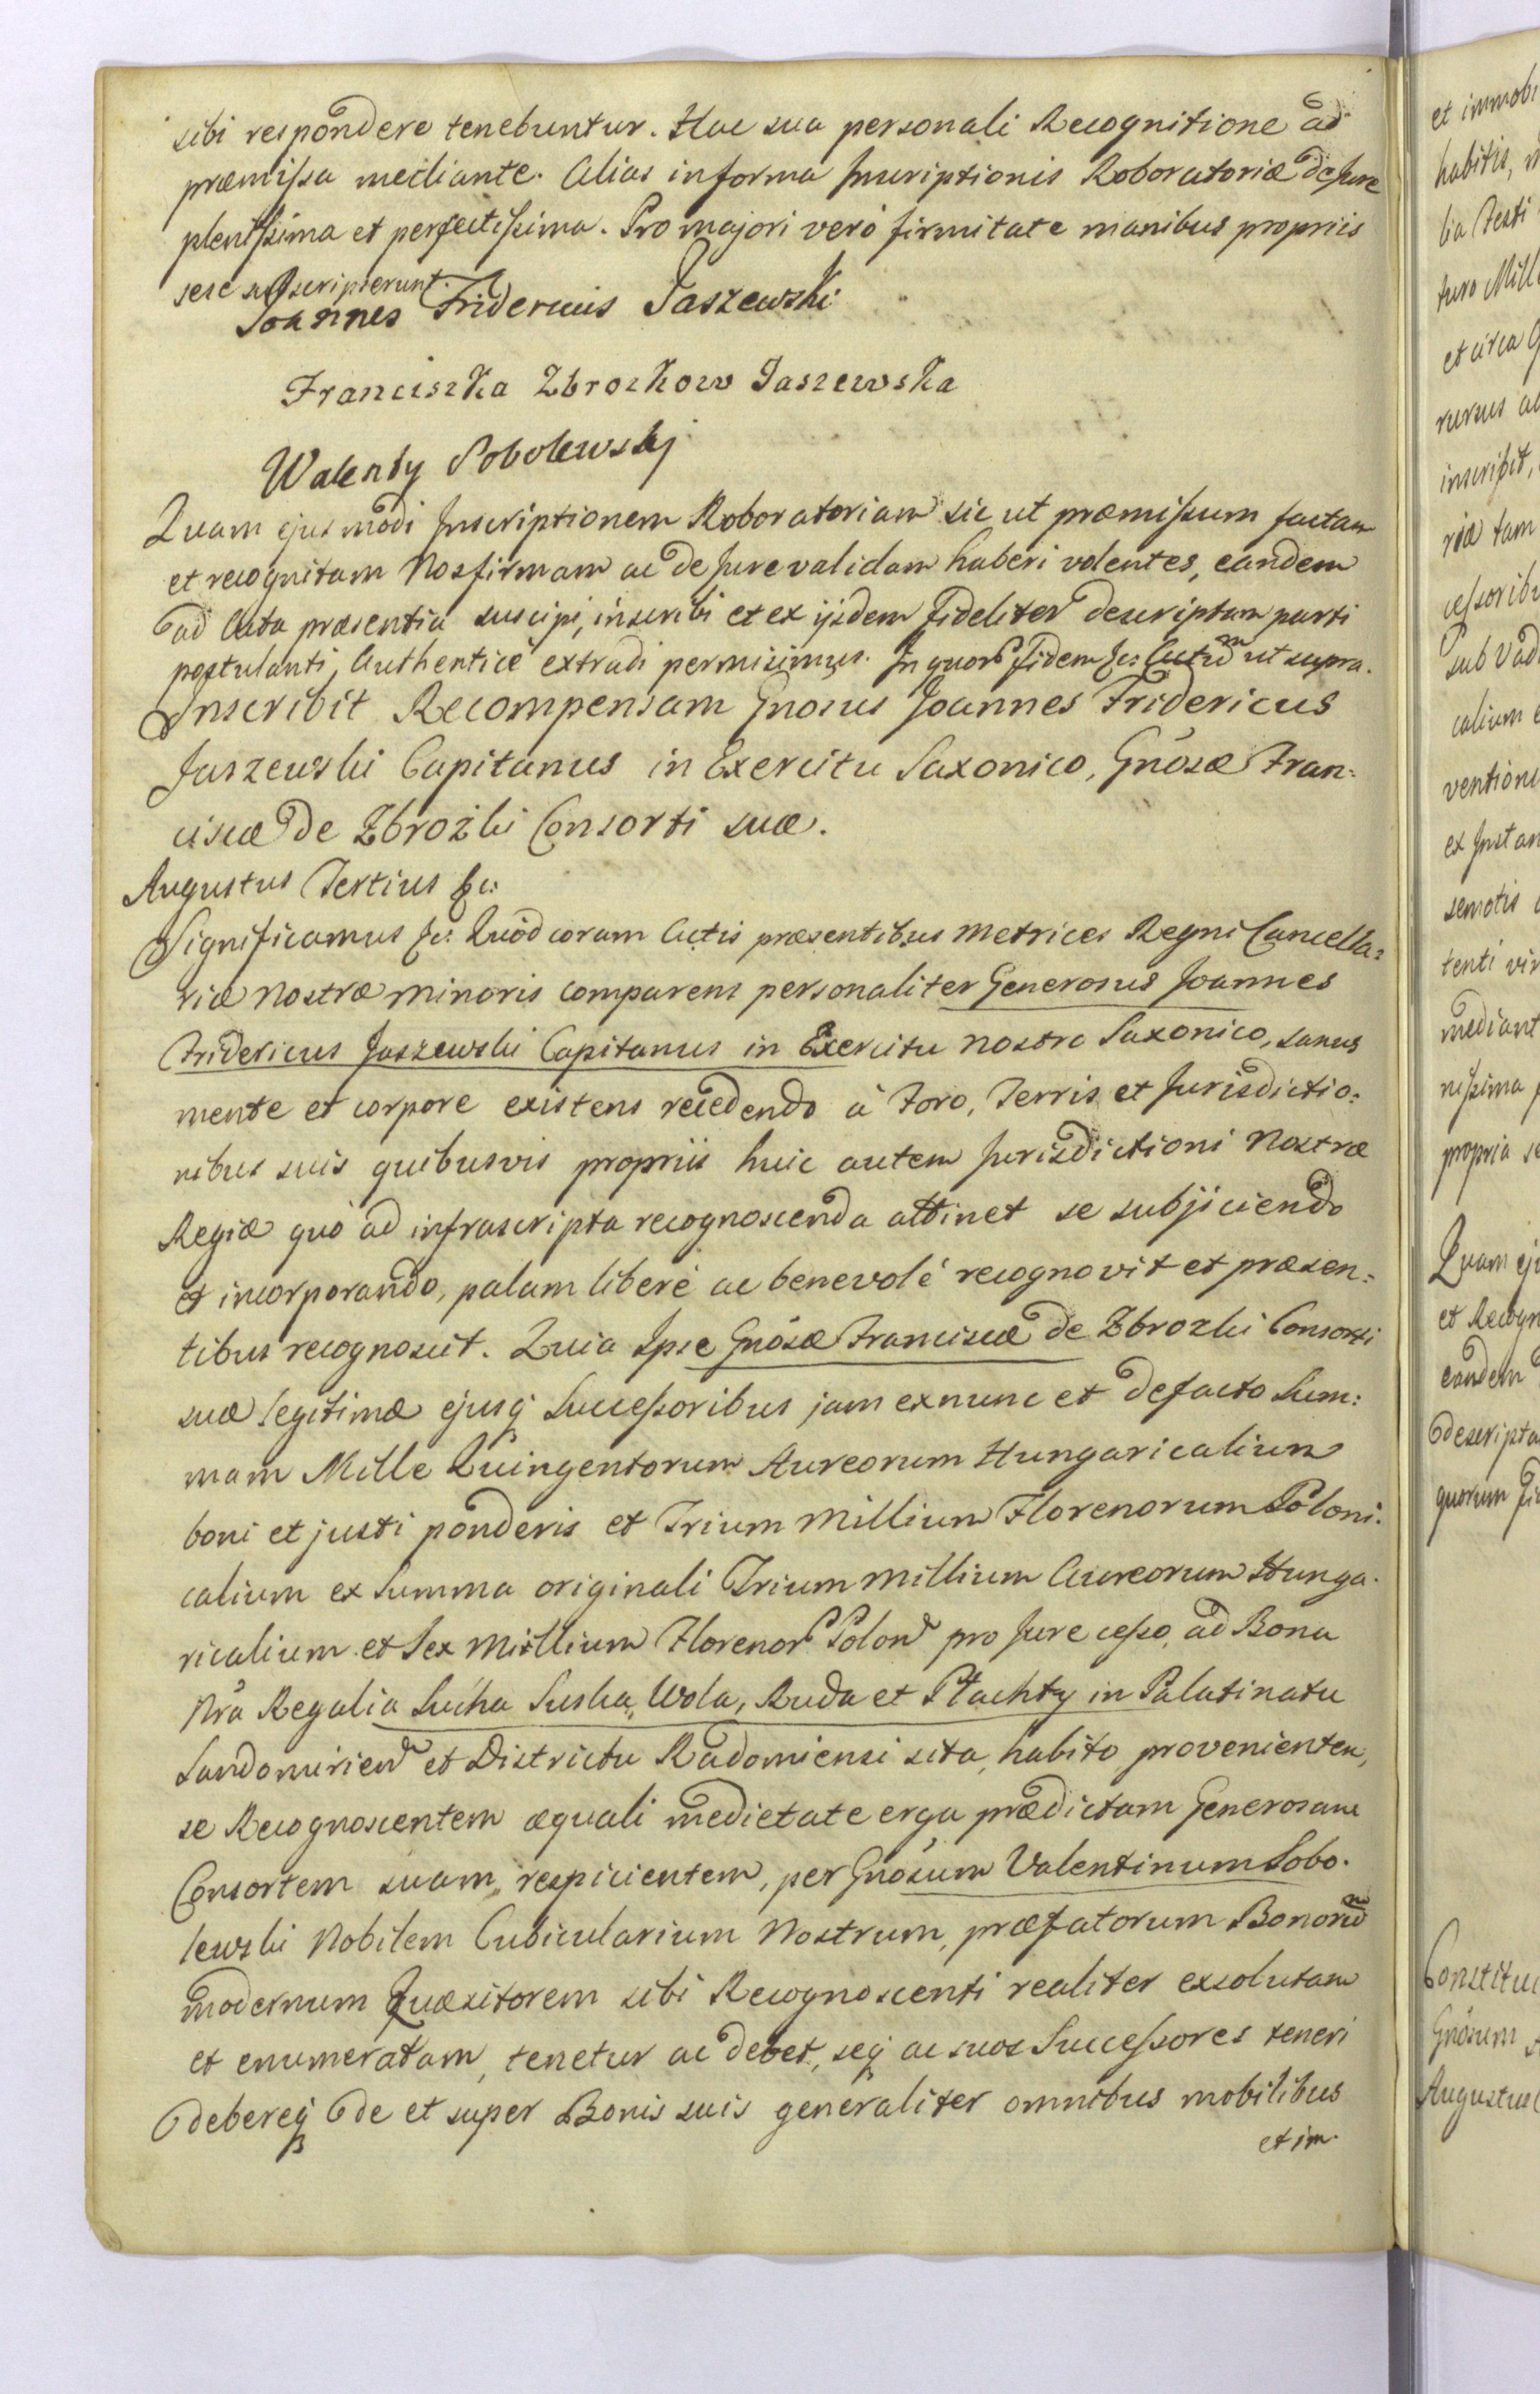 sibi respondere tenebuntur. Hac sua personali Recognitione ad
præmissa mediante. Alias in forma Inscriptionis Roboratoriæ de Jure
plenissima et perfectissima. Pro majori verò firmitate manibus propriis
sese subscripserunt.
Joannes Fridericus Jaszewski
Franciszka Zbrozkow Jaszewska
Walenty Sobolewskj
Quam ejusmodi Inscriptionem Roboratoriam sic ut præmissum factam
et recognitam Nos firmam ac de Jure validam haberi volentes, eandem
ad Acta præsentia suscipi, inscribi et ex ijsdem fideliter descriptam parti
postulanti, Authenticè extradi permisimus. In quor Fidem &c: Actum ut supra.
Inscribit Recompensam Gnosus Joannes Fridericus
Jaszewski Capitanus in Exercitu Saxonico, Gnosæ Fran:
ciscæ de Zbrożki Consorti suæ.
Augustus Tertius &c:
Significamus &c: Quòd coram Actis præsentibus Metrices Regni Cancella:
riæ Nostræ Minoris comparens personaliter Generosus Joannes
Fridericus Jaszewski Capitanus in Exercitu nostro Saxonico, sanus
mente et corpore existens recedendo à Foro, Terris et Jurisdictio:
nibus suis quibusvis propriis huic autem Jurisdictioni Nostræ
Regiæ quò ad infrascripta recognoscenda attinet se subjiciendo
et incorporando, palam liberè ac benevolè recognovit et præsen:
tibus recognoscit. Quia Ipse Gnosæ Franciscæ de Zbrozki Consorti
suæ legitimæ ejusq Successoribus jam ex nunc et de facto Sum:
mam Mille Quingentorum Aureorum Hungaricalium
boni et justi ponderis et Trium Millium Florenorum Poloni.
calium ex Summa originali Trium Millium Aureorum Hunga.
ricalium et Sex Millium Florenor Polon pro Jure cesso ad Bona
Nra Regalia Sucha Suska, Wola, Ruda et Płachty in Palatinatu
Sandomirien et Districtu Radomiensi sita, habito provenienten,
se Recognoscentem æquali medietate erga prædictam Generosam
Consortem suam respicientem, per Gnosum Valentinum Sobo.
lewski Nobilem Cubicularium Nostrum, præfatorum Bonorum
modernum Quæsitorem sibi Recognoscenti realiter exsolutam
et enumeratam, tenetur ac debet, seq ac suos Successores teneri
debereq de et super Bonis suis generaliter omnibus mobilibus
et im.
et immobi
habitis,
lia Testi
turo Mill
et circa
rursus
inscribit,
riæ tam
cessoribu
sub Vad
calium
ventione
ex Instan
semotis
tenti
mediant
nissima
propria
Quam ej
et Recogn
eandem
descripta
quorum Fi
Constitui
Gnosum
Augustus